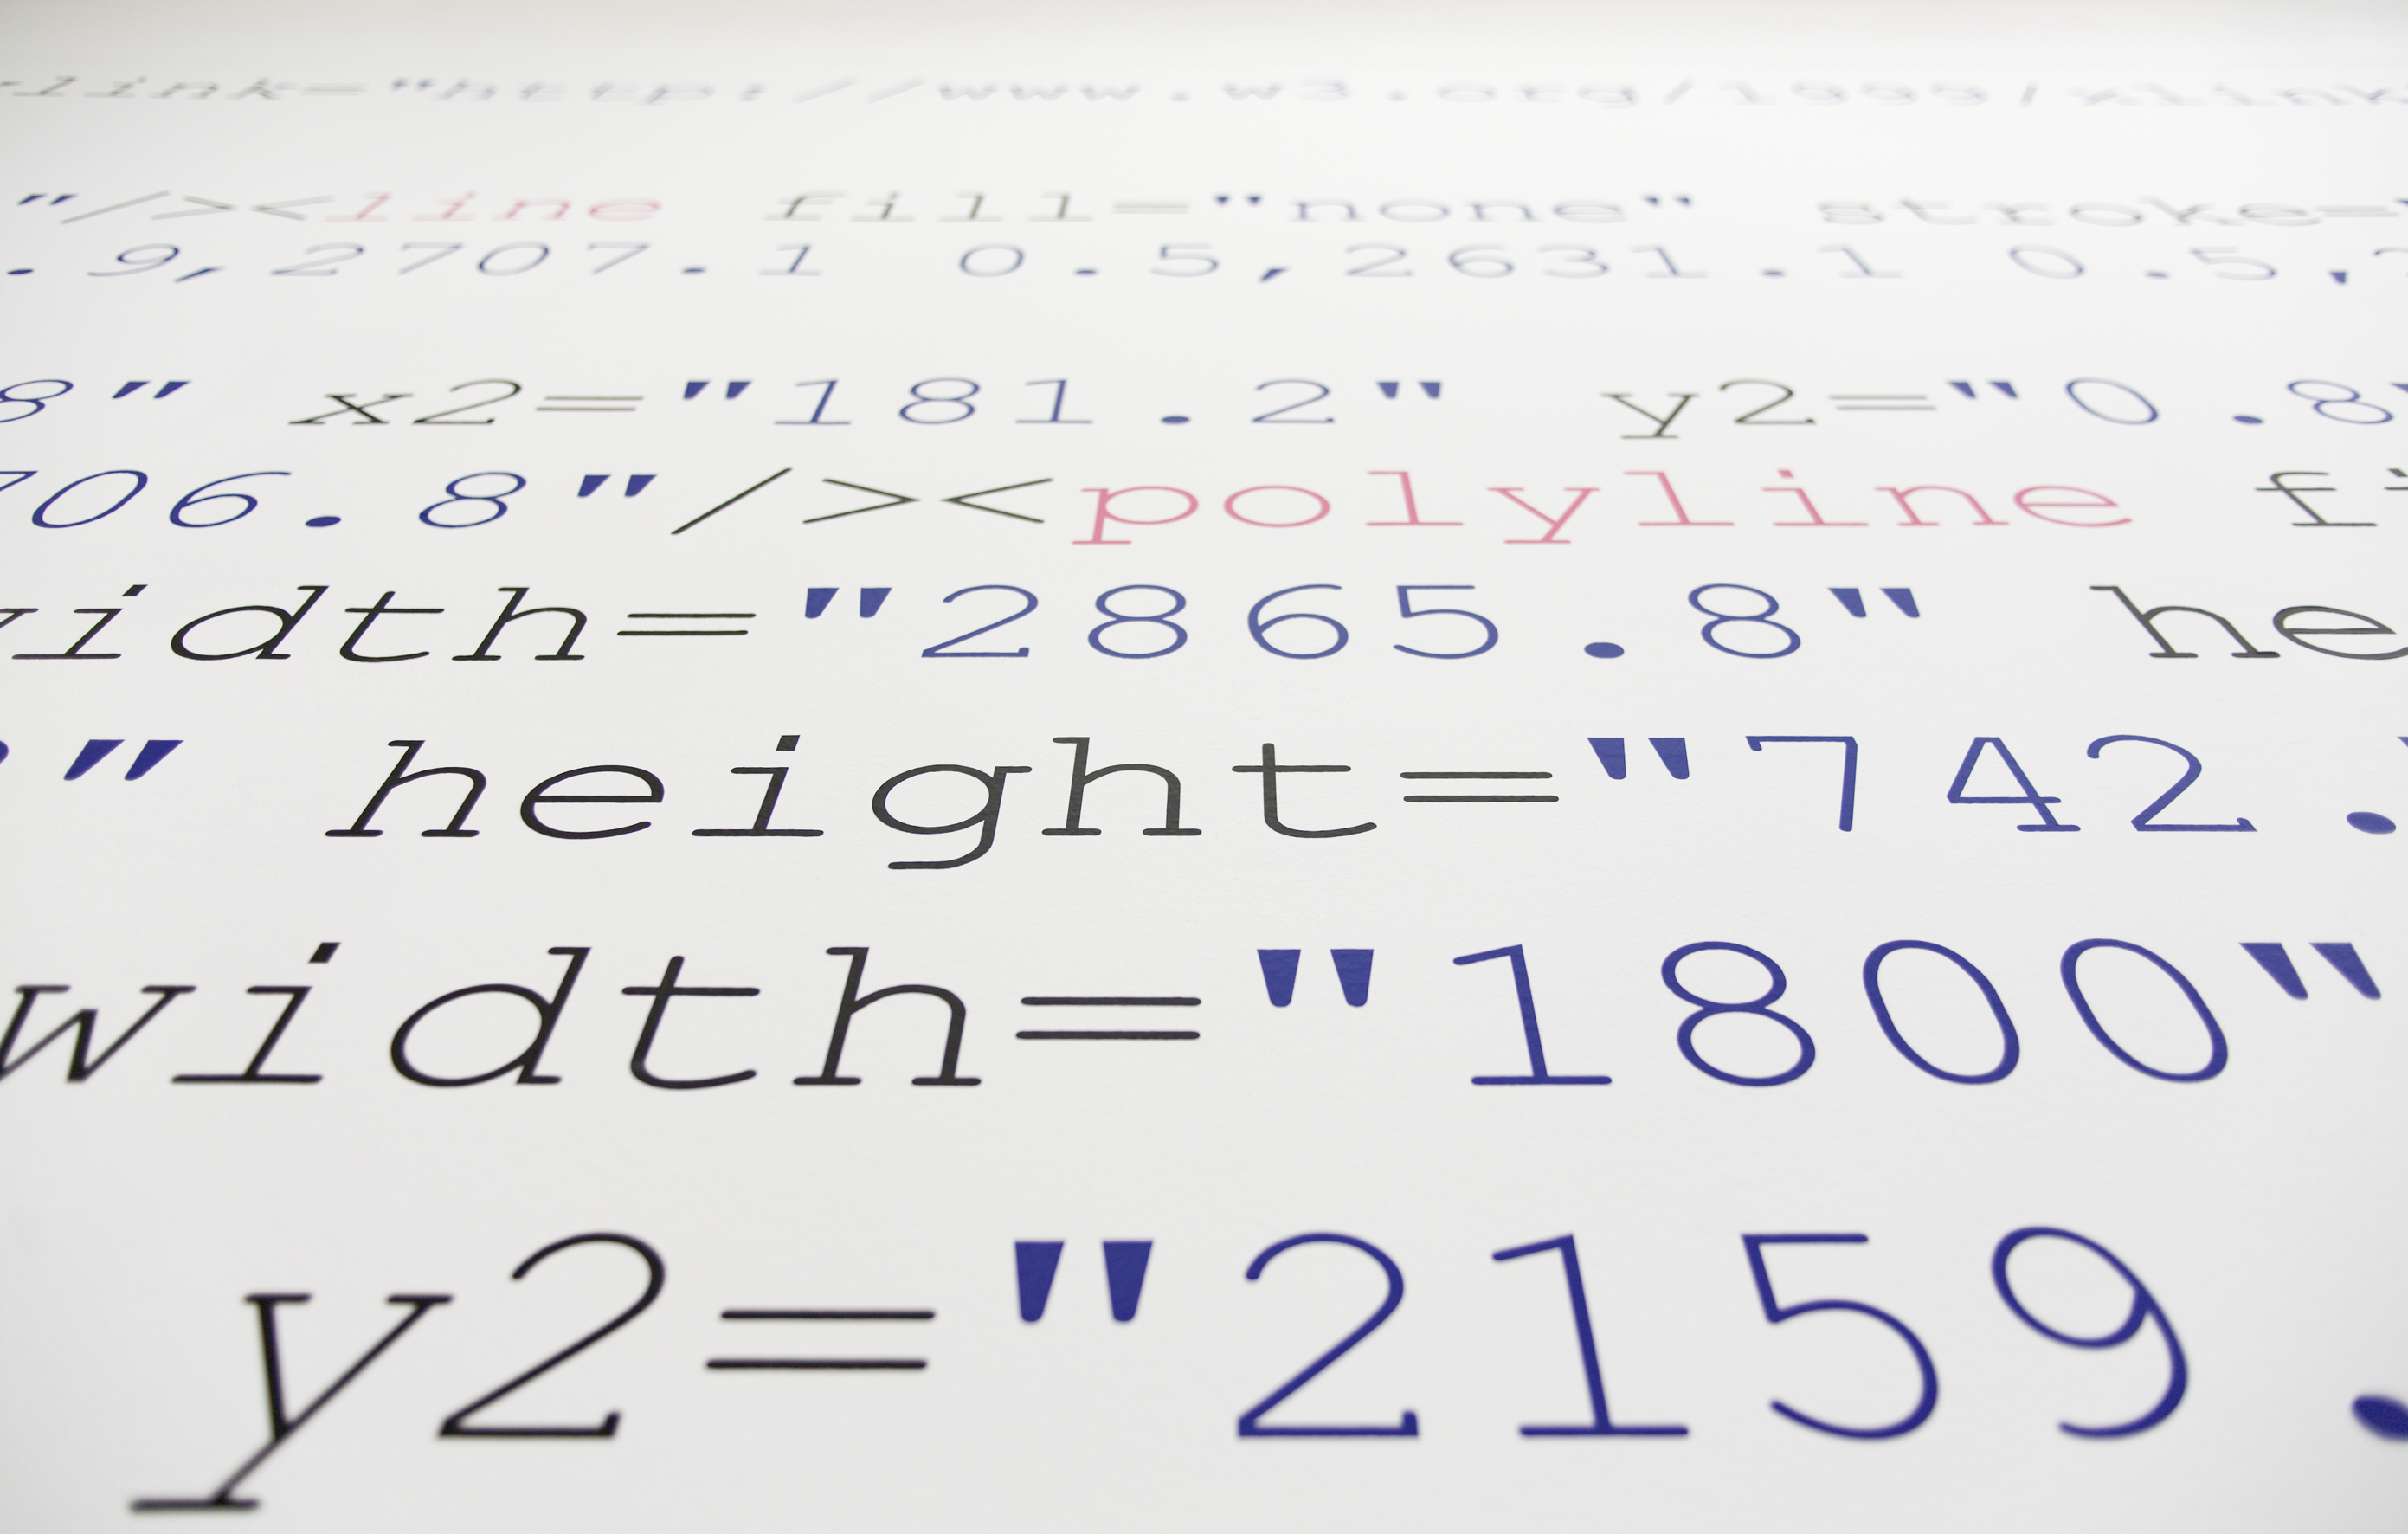 link="http://www.w3.org/1999/xlink
"/><line fill="none" stroke="
.9,2707.1 0.5,2631.1 0.5,
8" x2="181.2" y2="0.8
706.8"/><polyline fi
width="2865.8" he
" height="742.
width="1800"
y2="2159.